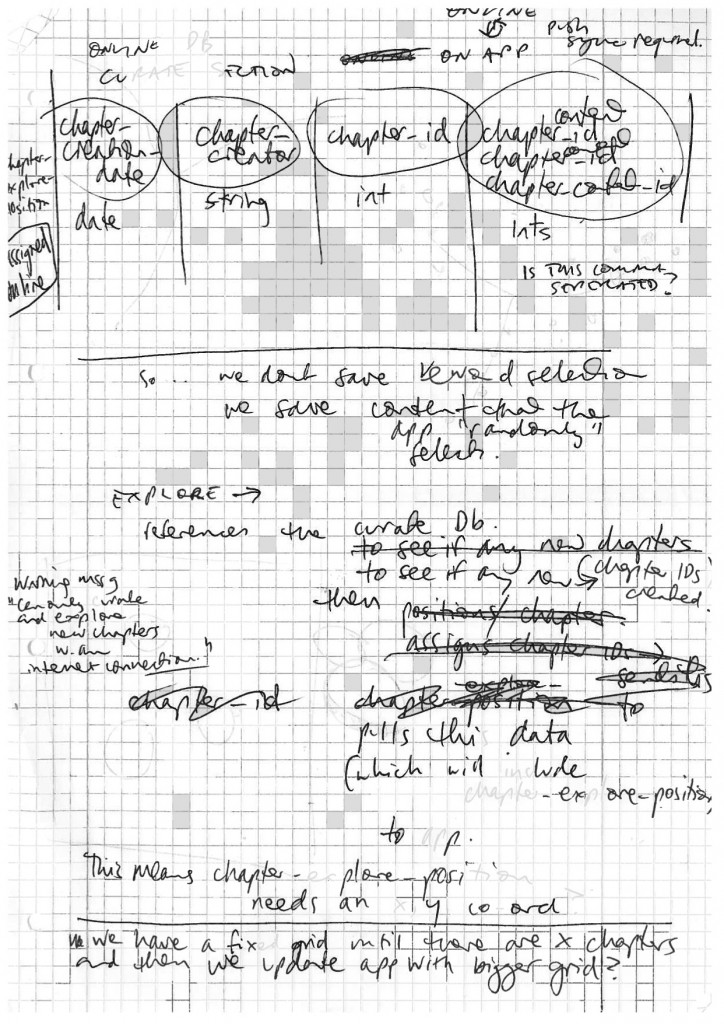 ONLINE
ONLINE DB
CURATE SECTION
ON APP
push
sync required.
chapter-
explore-
position
assigned
online
chapter-
creation-
date
date
chapter-
creator
string
chapter-id
int
content
chapter-id
content
chapter-id
chapter-content-id
ints
IS THIS COMMA
SEPERATED?
so... we dont save keyword selection
we save content that the
app "randomly"
selects.
EXPLORE →
references the curate Db.
to see if any new chapters
to see if any new chapter IDs
created.
Warning mssg
"can only curate
and explore
new chapters
w. an
internet connection."
then positions/chapter
assigns chapter IDs
sends
explore-
chapter-id chapter-position to
pulls this data
(which will include
chapter-explore-position
to app.
This means chapter-explore-position
needs an x y co-ord
we have a fix grid until there are x chapters
and then we update app with bigger grid?